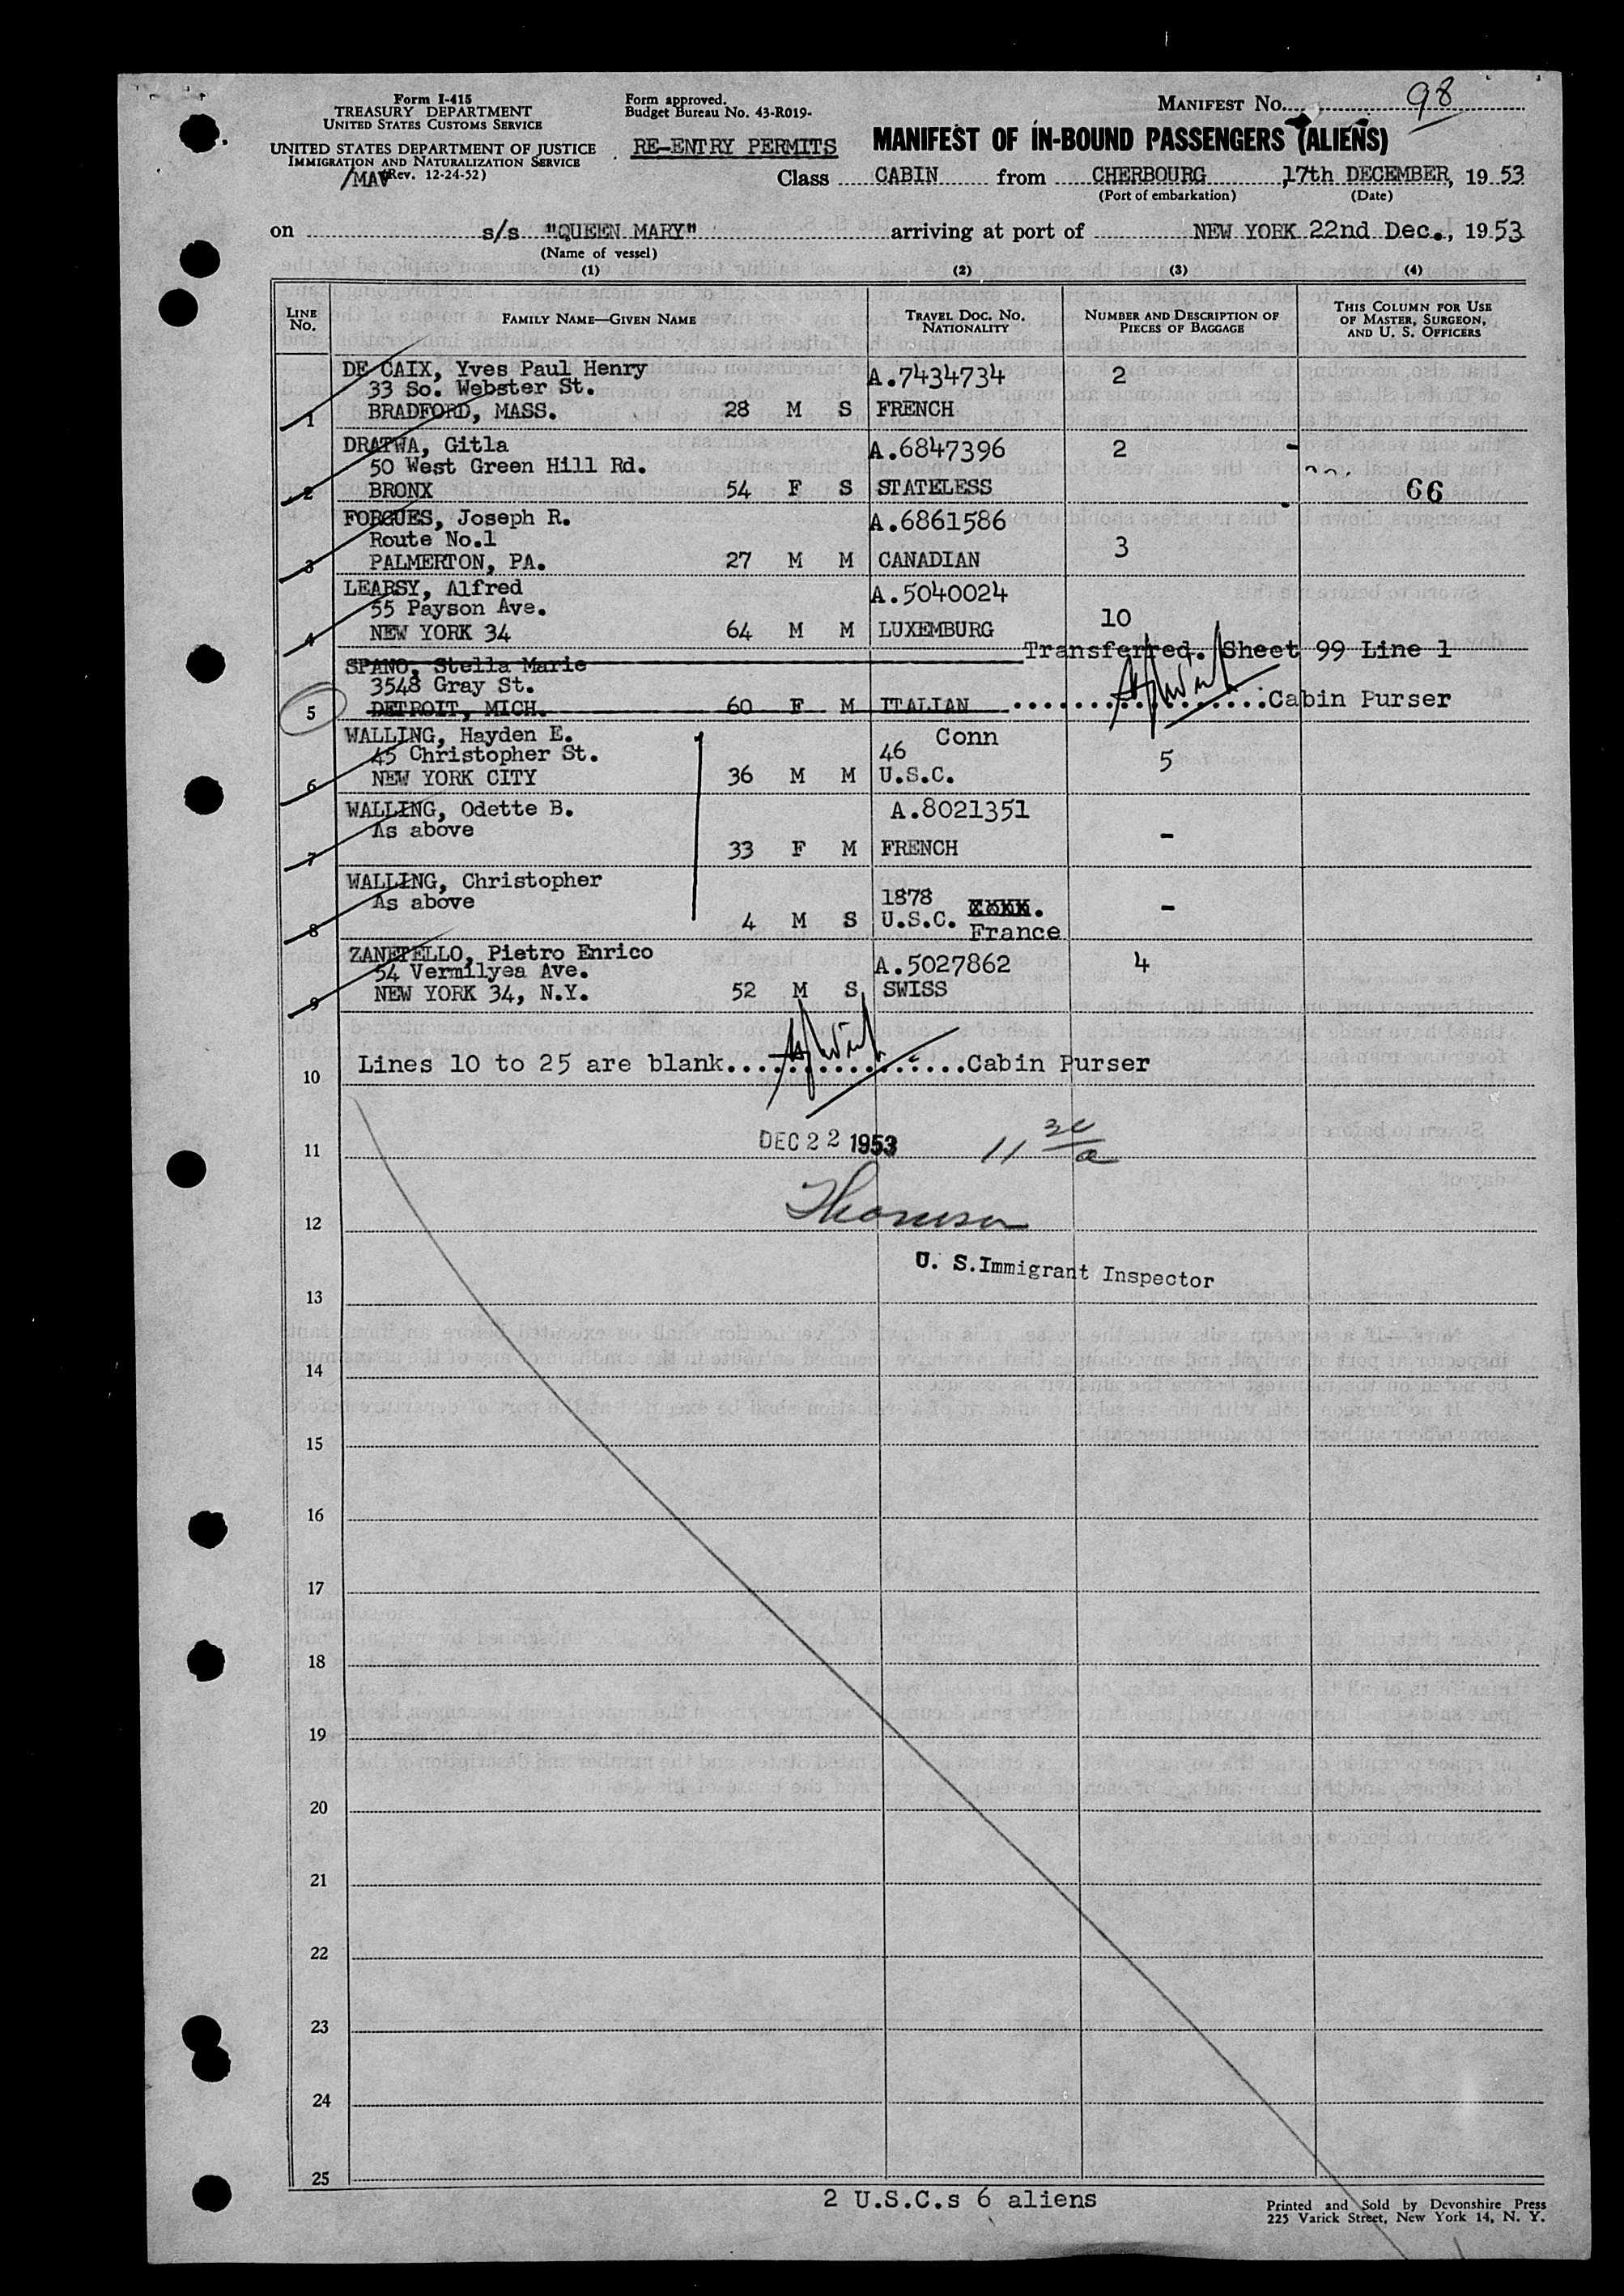 Form I-415
TREASURY DEPARTMENT
UNITED STATES CUSTOMS SERVICE
UNITED STATES DEPARTMENT OF JUSTICE
IMMIGRATION AND NATURALIZATION SERVICE
(Rev. 12-24-52)
/MAV
Form approved.
Budget Bureau No. 43-R019-
RE-ENTRY PERMITS
MANIFEST No. 98
MANIFEST OF IN-BOUND PASSENGERS (ALIENS)
Class CABIN from CHERBOURG, 17th DECEMBER, 19 53
(Port of embarkation) (Date)
on s/s "QUEEN MARY" arriving at port of NEW YORK 22nd Dec., 19 53
(Name of vessel)
(1) (2) (3) (4)
LINE No. FAMILY NAME—GIVEN NAME TRAVEL DOC. NO. NATIONALITY NUMBER AND DESCRIPTION OF PIECES OF BAGGAGE THIS COLUMN FOR USE OF MASTER, SURGEON, AND U. S. OFFICERS
DE CAIX, Yves Paul Henry A.7434734 2
33 So. Webster St.
1 BRADFORD, MASS. 28 M S FRENCH
DRATWA, Gitla A.6847396 2 -
50 West Green Hill Rd.
2 BRONX 54 F S STATELESS 66
FORGUES, Joseph R. A.6861586
Route No.1 3
3 PALMERTON, PA. 27 M M CANADIAN
LEARSY, Alfred A.5040024
55 Payson Ave. 10
4 NEW YORK 34 64 M M LUXEMBURG
Transferred. Sheet 99 Line 1
SPANO, Stella Marie
3548 Gray St.
5 DETROIT, MICH. 60 F M ITALIAN ..................Cabin Purser
WALLING, Hayden E. Conn
45 Christopher St. 46 5
6 NEW YORK CITY 36 M M U.S.C.
WALLING, Odette B. A.8021351
As above -
7 33 F M FRENCH
WALLING, Christopher 1878
As above -
8 4 M S U.S.C. XXXX. France
ZANETELLO, Pietro Enrico A.5027862 4
54 Vermilyea Ave.
9 NEW YORK 34, N.Y. 52 M S SWISS
10 Lines 10 to 25 are blank..................Cabin Purser
DEC 22 1953
11 11 30/a
12 Thomson
U. S. Immigrant Inspector
13
14
15
16
17
18
19
20
21
22
23
24
25
2 U.S.C.s 6 aliens
Printed and Sold by Devonshire Press
225 Varick Street, New York 14, N. Y.